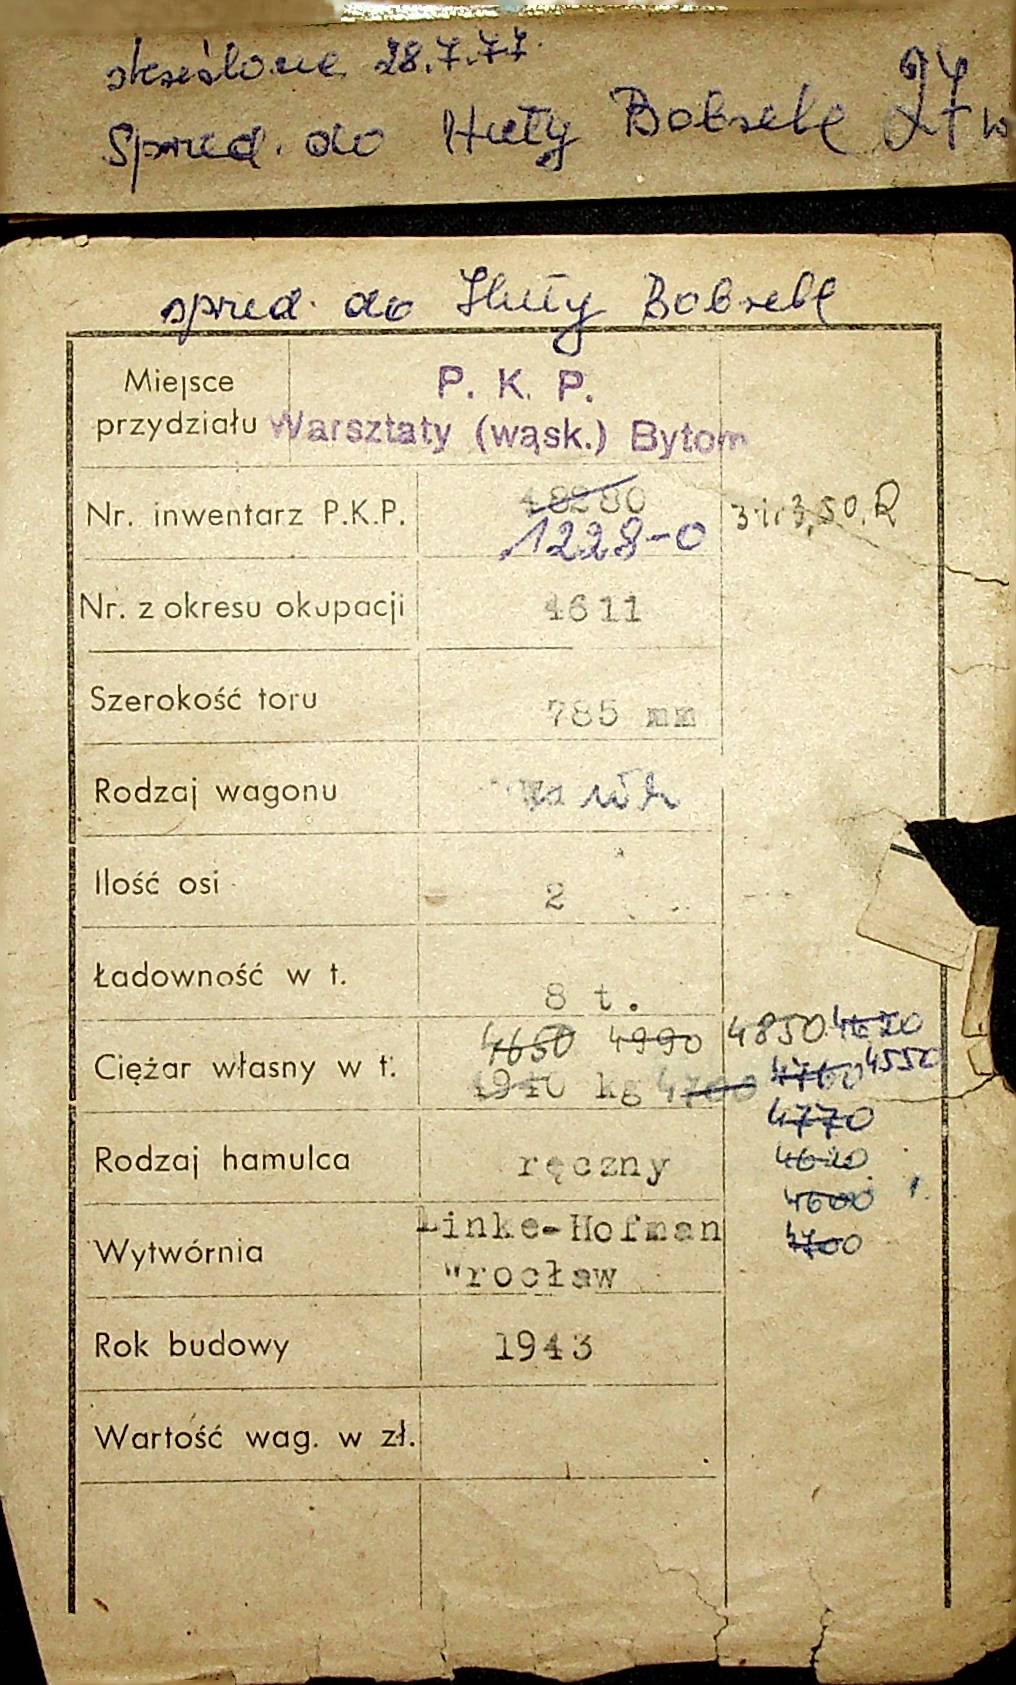 skreślone 28.7.77.
Spred. do Huty Bobrek 27 w
spred. do Huty Bobrek
Miejsce przydziału P. K. P.
Warsztaty (wąsk.) Bytom
Nr. inwentarz P.K.P. 48280
1228-0
Nr. z okresu okupacji 4611
Szerokość toru 785 mm
Rodzaj wagonu
Ilość osi 2
Ładowność w t. 8 t.
4650 4990 4850 4620
Ciężar własny w t. 4940 kg 4700 4760 4550
4770
Rodzaj hamulca ręczny 4620
4600
Wytwórnia Linke-Hofman 4700
Wrocław
Rok budowy 1943
Wartość wag. w zł.